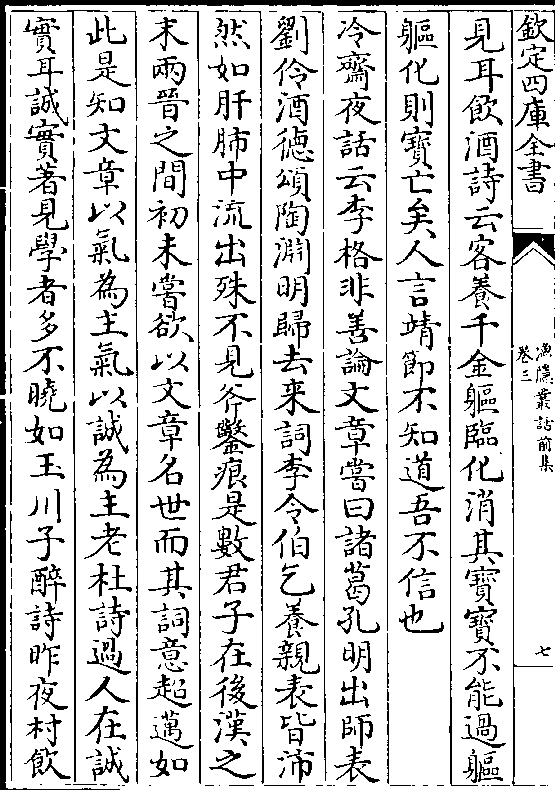 欽定四庫全書
漁隱叢話前集
卷三
七
見耳飲酒詩云客養千金軀臨化消其寶寶不能過軀
軀化則寶亡矣人言靖節不知道吾不信也
冷齋夜話云李格非善論文章嘗曰諸葛孔明出師表
劉伶酒德頌陶淵明歸去来詞李令伯乞養親表皆沛
然如肝肺中流出殊不見斧鑿痕是數君子在後漢之
末兩晉之間初未嘗欲以文章名世而其詞意超邁如
此是知文章以氣為主氣以誠為主老杜詩過人在誠
實耳誠實著見學者多不曉如玉川子醉詩昨夜村飲